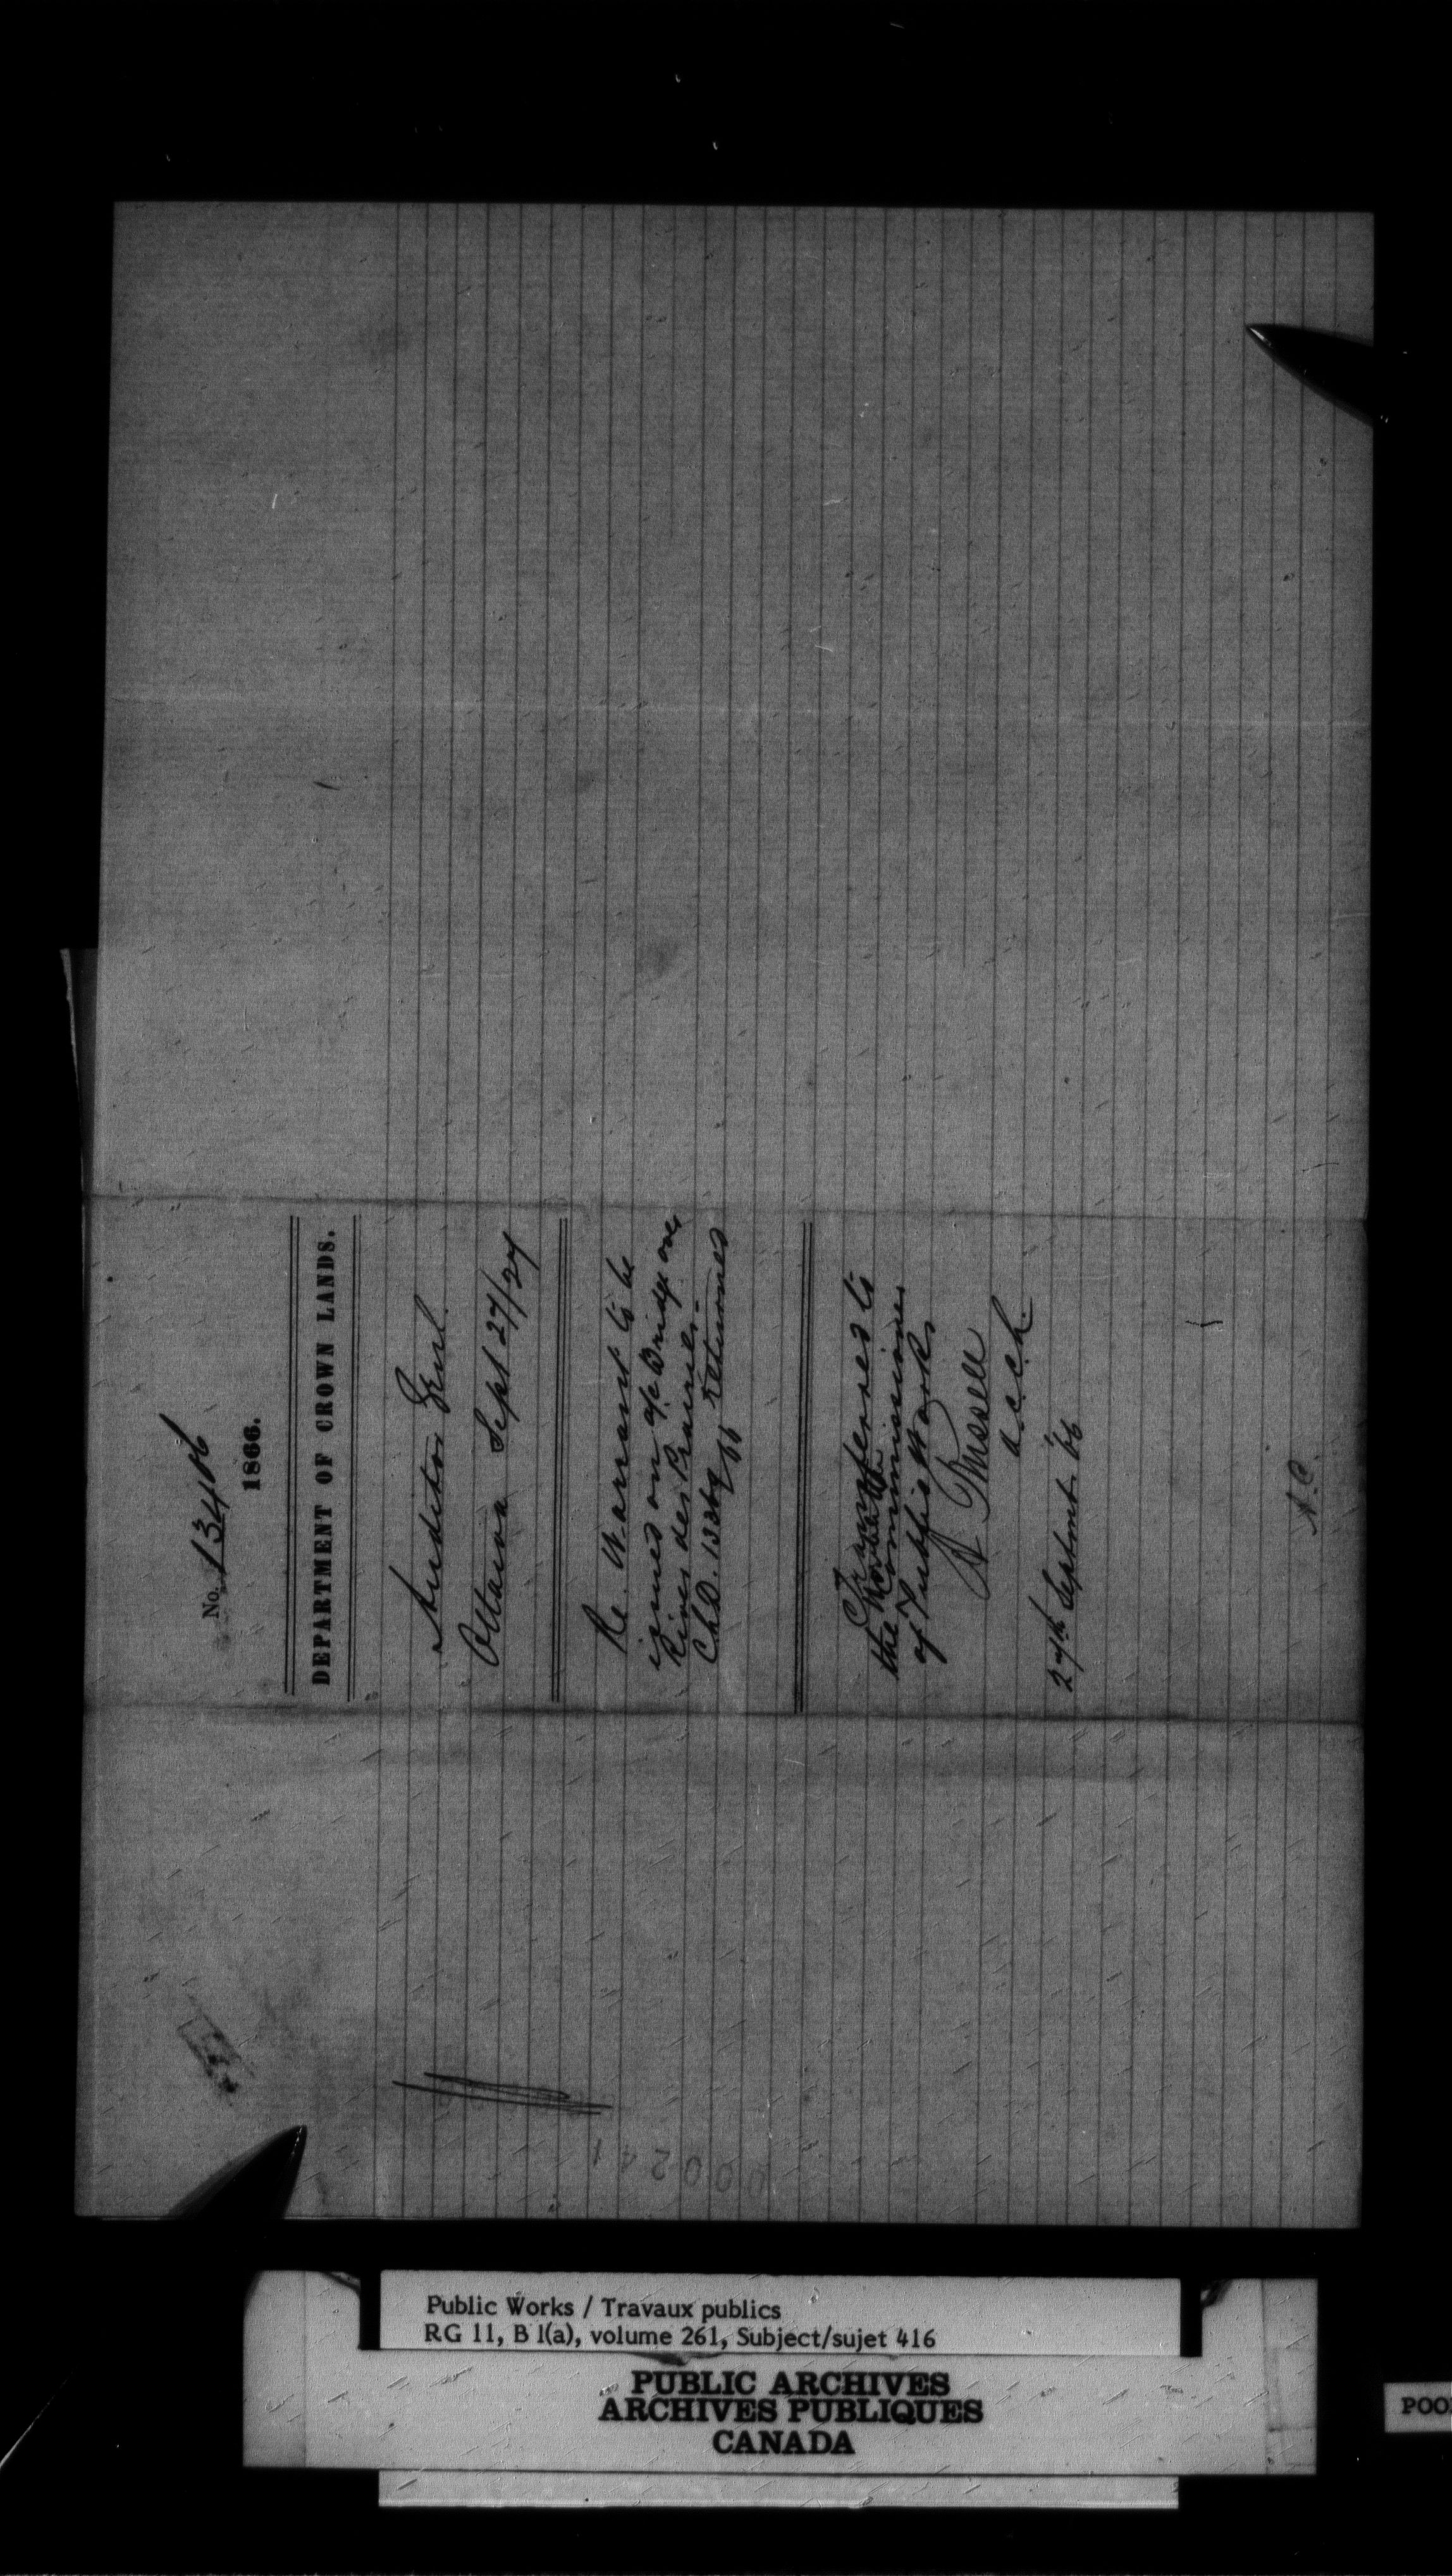 No. 13406
1866.
DEPARTMENT OF CROWN LANDS.
Auditor Genl.
Ottawa Sept 27/27
Re. Warrant to be
issued on a/c Bridge over
River des Prairies.
returned
Transferred to
the Commissioner
of Public Works
A Russell
a.c.c.l.
27th Septmr. '66
A.C.
000241
Public Works / Travaux publics
RG 11, B 1(a), volume 261, Subject/sujet 416
PUBLIC ARCHIVES
ARCHIVES PUBLIQUES
CANADA
POO